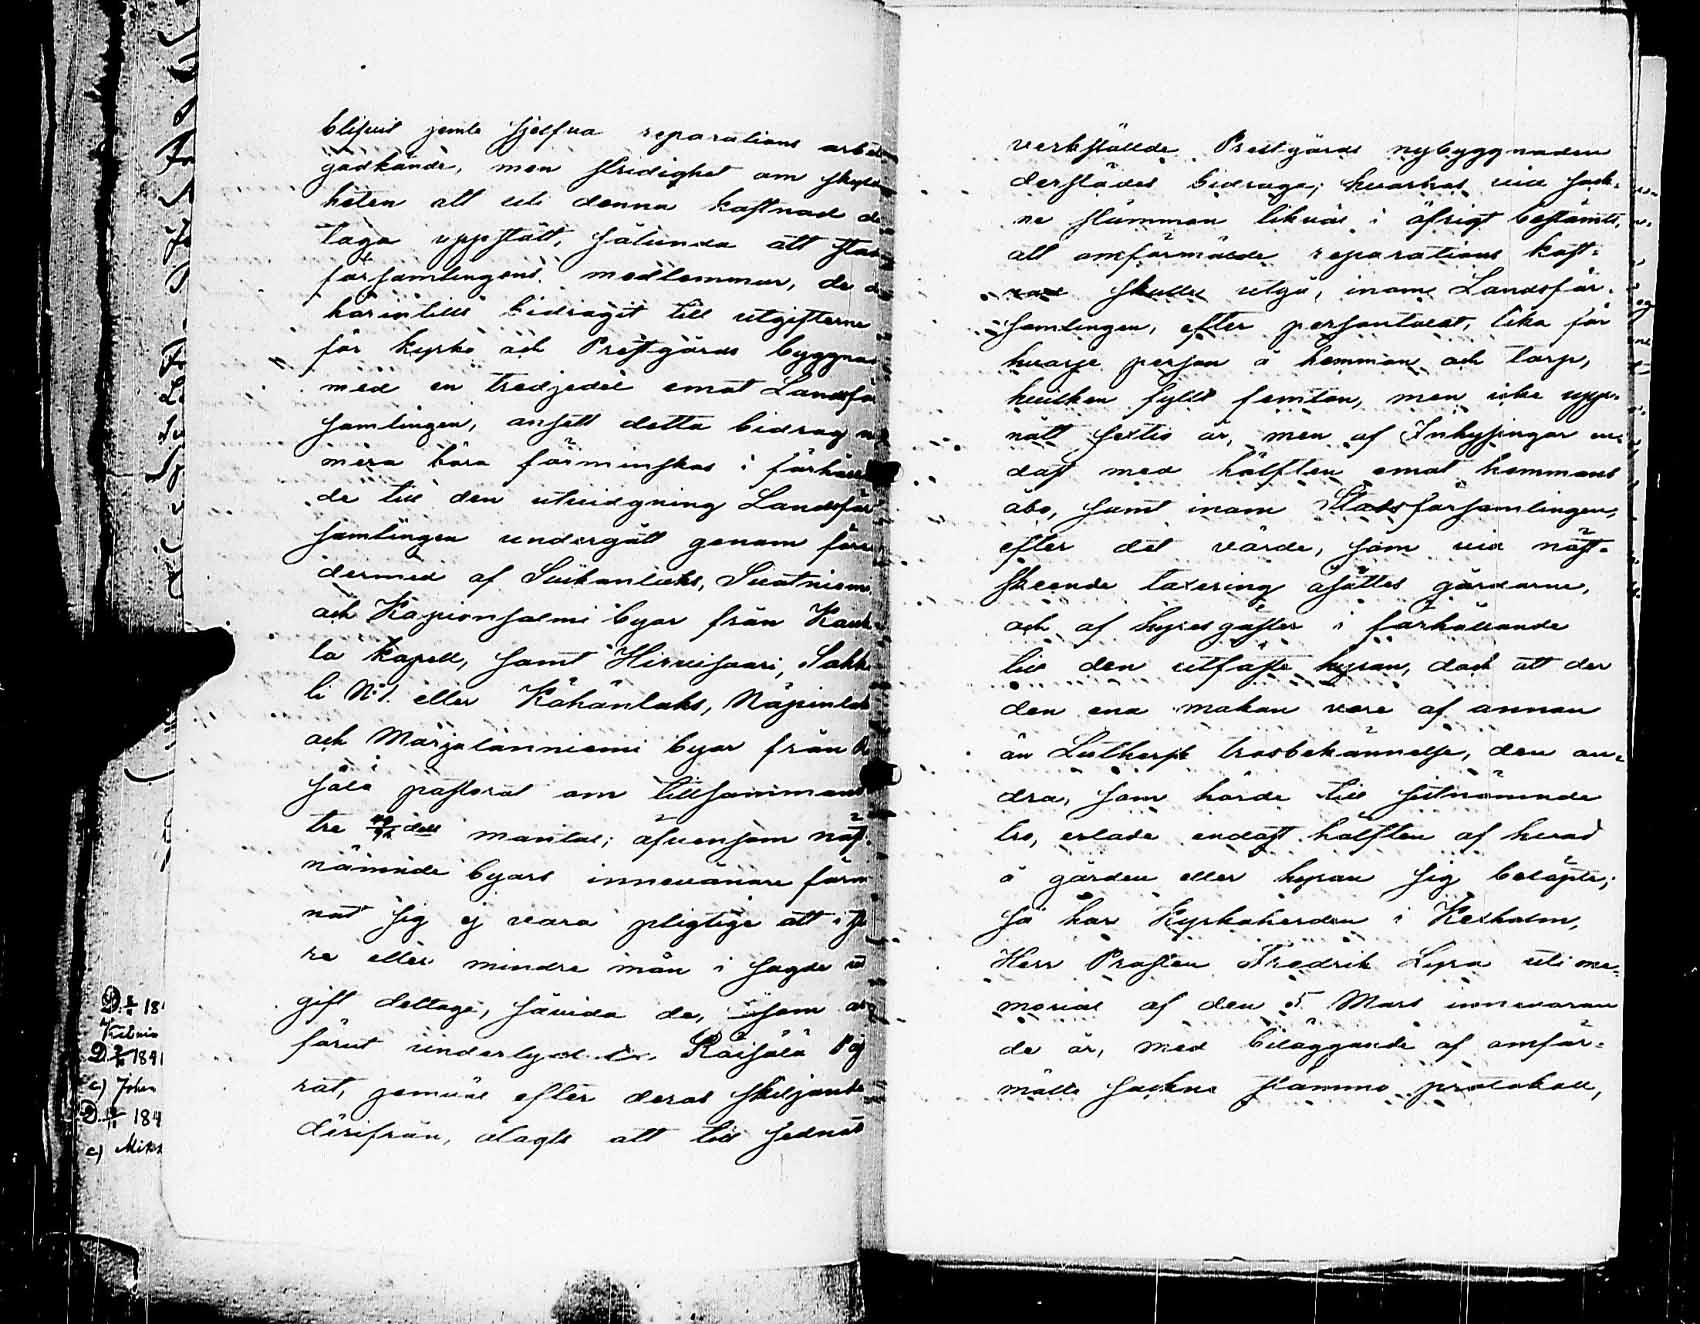 blifvit jemte sjelfva reparations arbe
godkände, men stridighet om skyl
heten att uti denna kostnad de
taga uppstått, sålunda att stad
församlingens medlemmar, de
härintills bidragit till utgifterne
för kyrko och Prestgårds byggna
med en tredjedel emot Landsför
samlingen, ansett detta bidrag n
mera böra förminskas i förhållan
de till den utvidgning Landsför
samlingen undergått genom före
dermed af Suikanlaks, Suotniemi
och Kapionsalmi byar från Kauk
la Kapell, samt Hirvisaari, Sakk
li No 1. eller Kähänlaks, Näpinlak
och Marjalänniemi byar från R
sälä pastorat om tillsammans
tre dels mantal; äfvensom näst
nämnde byars innevånare förm
nat sig ej vara pligtige att i stö
re eller mindre mån i sagde ut
gift deltaga, såvida de, som
förut underlydt Räisälä Pa
rat, jemväl efter deras skiljande
därifrån, ålagts att till sednast
verkställde Prestgårds nybyggnaden
derstädes bidraga; hvarhos vid sock-
ne stämman likväl i öfrigt bestämts,
att omförmälde reparations kost-
nad skulle utgå, inom Landsför-
samlingen, efter persontalet, lika för
hvarje person å hemman och torp,
hvilken fyllt femton, men icke upp-
nått sextio år, men af Inhysingar en-
dast med hälften emot hemmans
åbo, samt inom Stadsförsamlingen,
efter det värde, som vid näst-
skeende taxering åsättes gårdarne,
och af hyresgäster i förhållande
till den utfäste hyran, dock att der
den ena makan vore af annan
än Lutherisk trosbekännelse, den an-
dra, som hörde till sistnämnde
tro, erlade endast hälften af hvad
å gården eller hyran sig belöpte;
så har Kyrkoherden i Kexholm,
Herr Prosten Fredrik Lyra uti me-
morial af den 5 Mars innevaran
de år, med biläggande af omför-
mälte sockne stämmo protokoll,
18
D. 1891
c) Johan
D. 184
c) Mikk